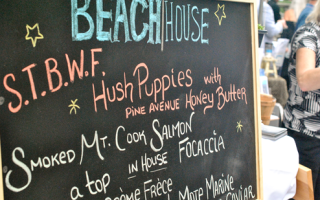 BEACH HOUSE
S.T.B.W.F.
Hush Puppies with
Pine Avenue Honey Butter
Smoked Mt. Cook Salmon
a top in House Focaccia
Frèce Mote Marine
Caviar